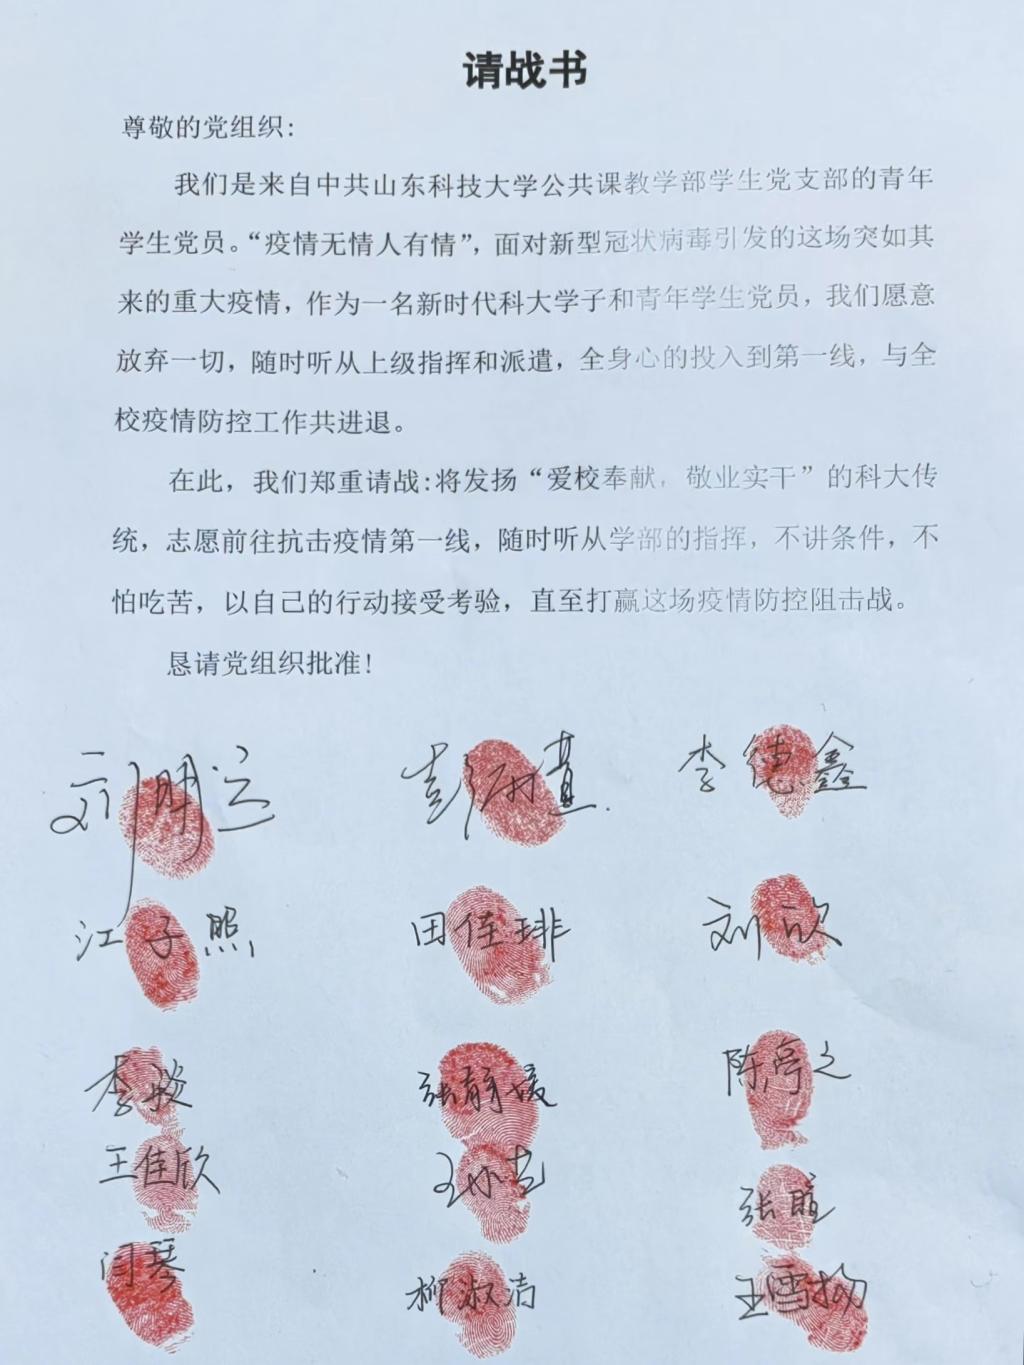 请战书
尊敬的党组织：
我们是来自中共山东科技大学公共课教学部学生党支部的青年
学生党员。“疫情无情人有情”，面对新型冠状病毒引发的这场突如其
来的重大疫情，作为一名新时代科大学子和青年学生党员，我们愿意
放弃一切，随时听从上级指挥和派遣，全身心的投入到第一线，与全
校疫情防控工作共进退。
在此，我们郑重请战：将发扬“爱校奉献，敬业实干”的科大传
统，志愿前往抗击疫情第一线，随时听从学部的指挥，不讲条件，不
怕吃苦，以自己的行动接受考验，直至打赢这场疫情防控阻击战。
恳请党组织批准！
刘明运 李德鑫
江子照 田佳琲 刘欣
李骏 张静媛 陈亭之
王佳欣
闫琴 柳淑清 王雪扬